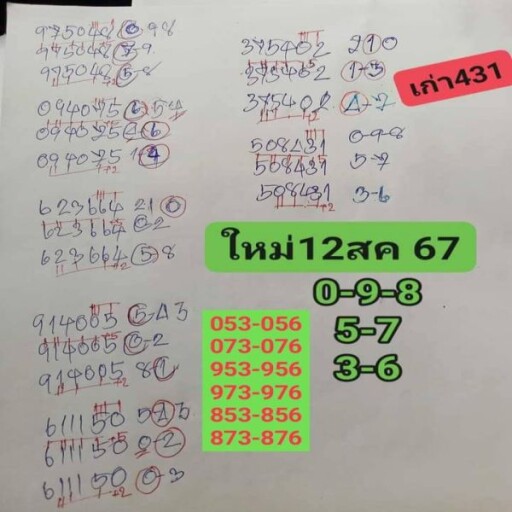 975042 0 98
975042 3-9
975042 5-8
094075 6 54
094075 4-6
094075 1-4
623664 21 0
623664 0-2
623664 5-8
914005 5-43
914005 0-2
914005 8-1
611150 543
611150 0-2
611150 0-3
375402 210
375402 1-3
375402 4-7
เก่า431
508431 0-9-8
508431 5-7
508431 3-6
ใหม่12สค 67
0-9-8
5-7
3-6
053-056
073-076
953-956
973-976
853-856
873-876